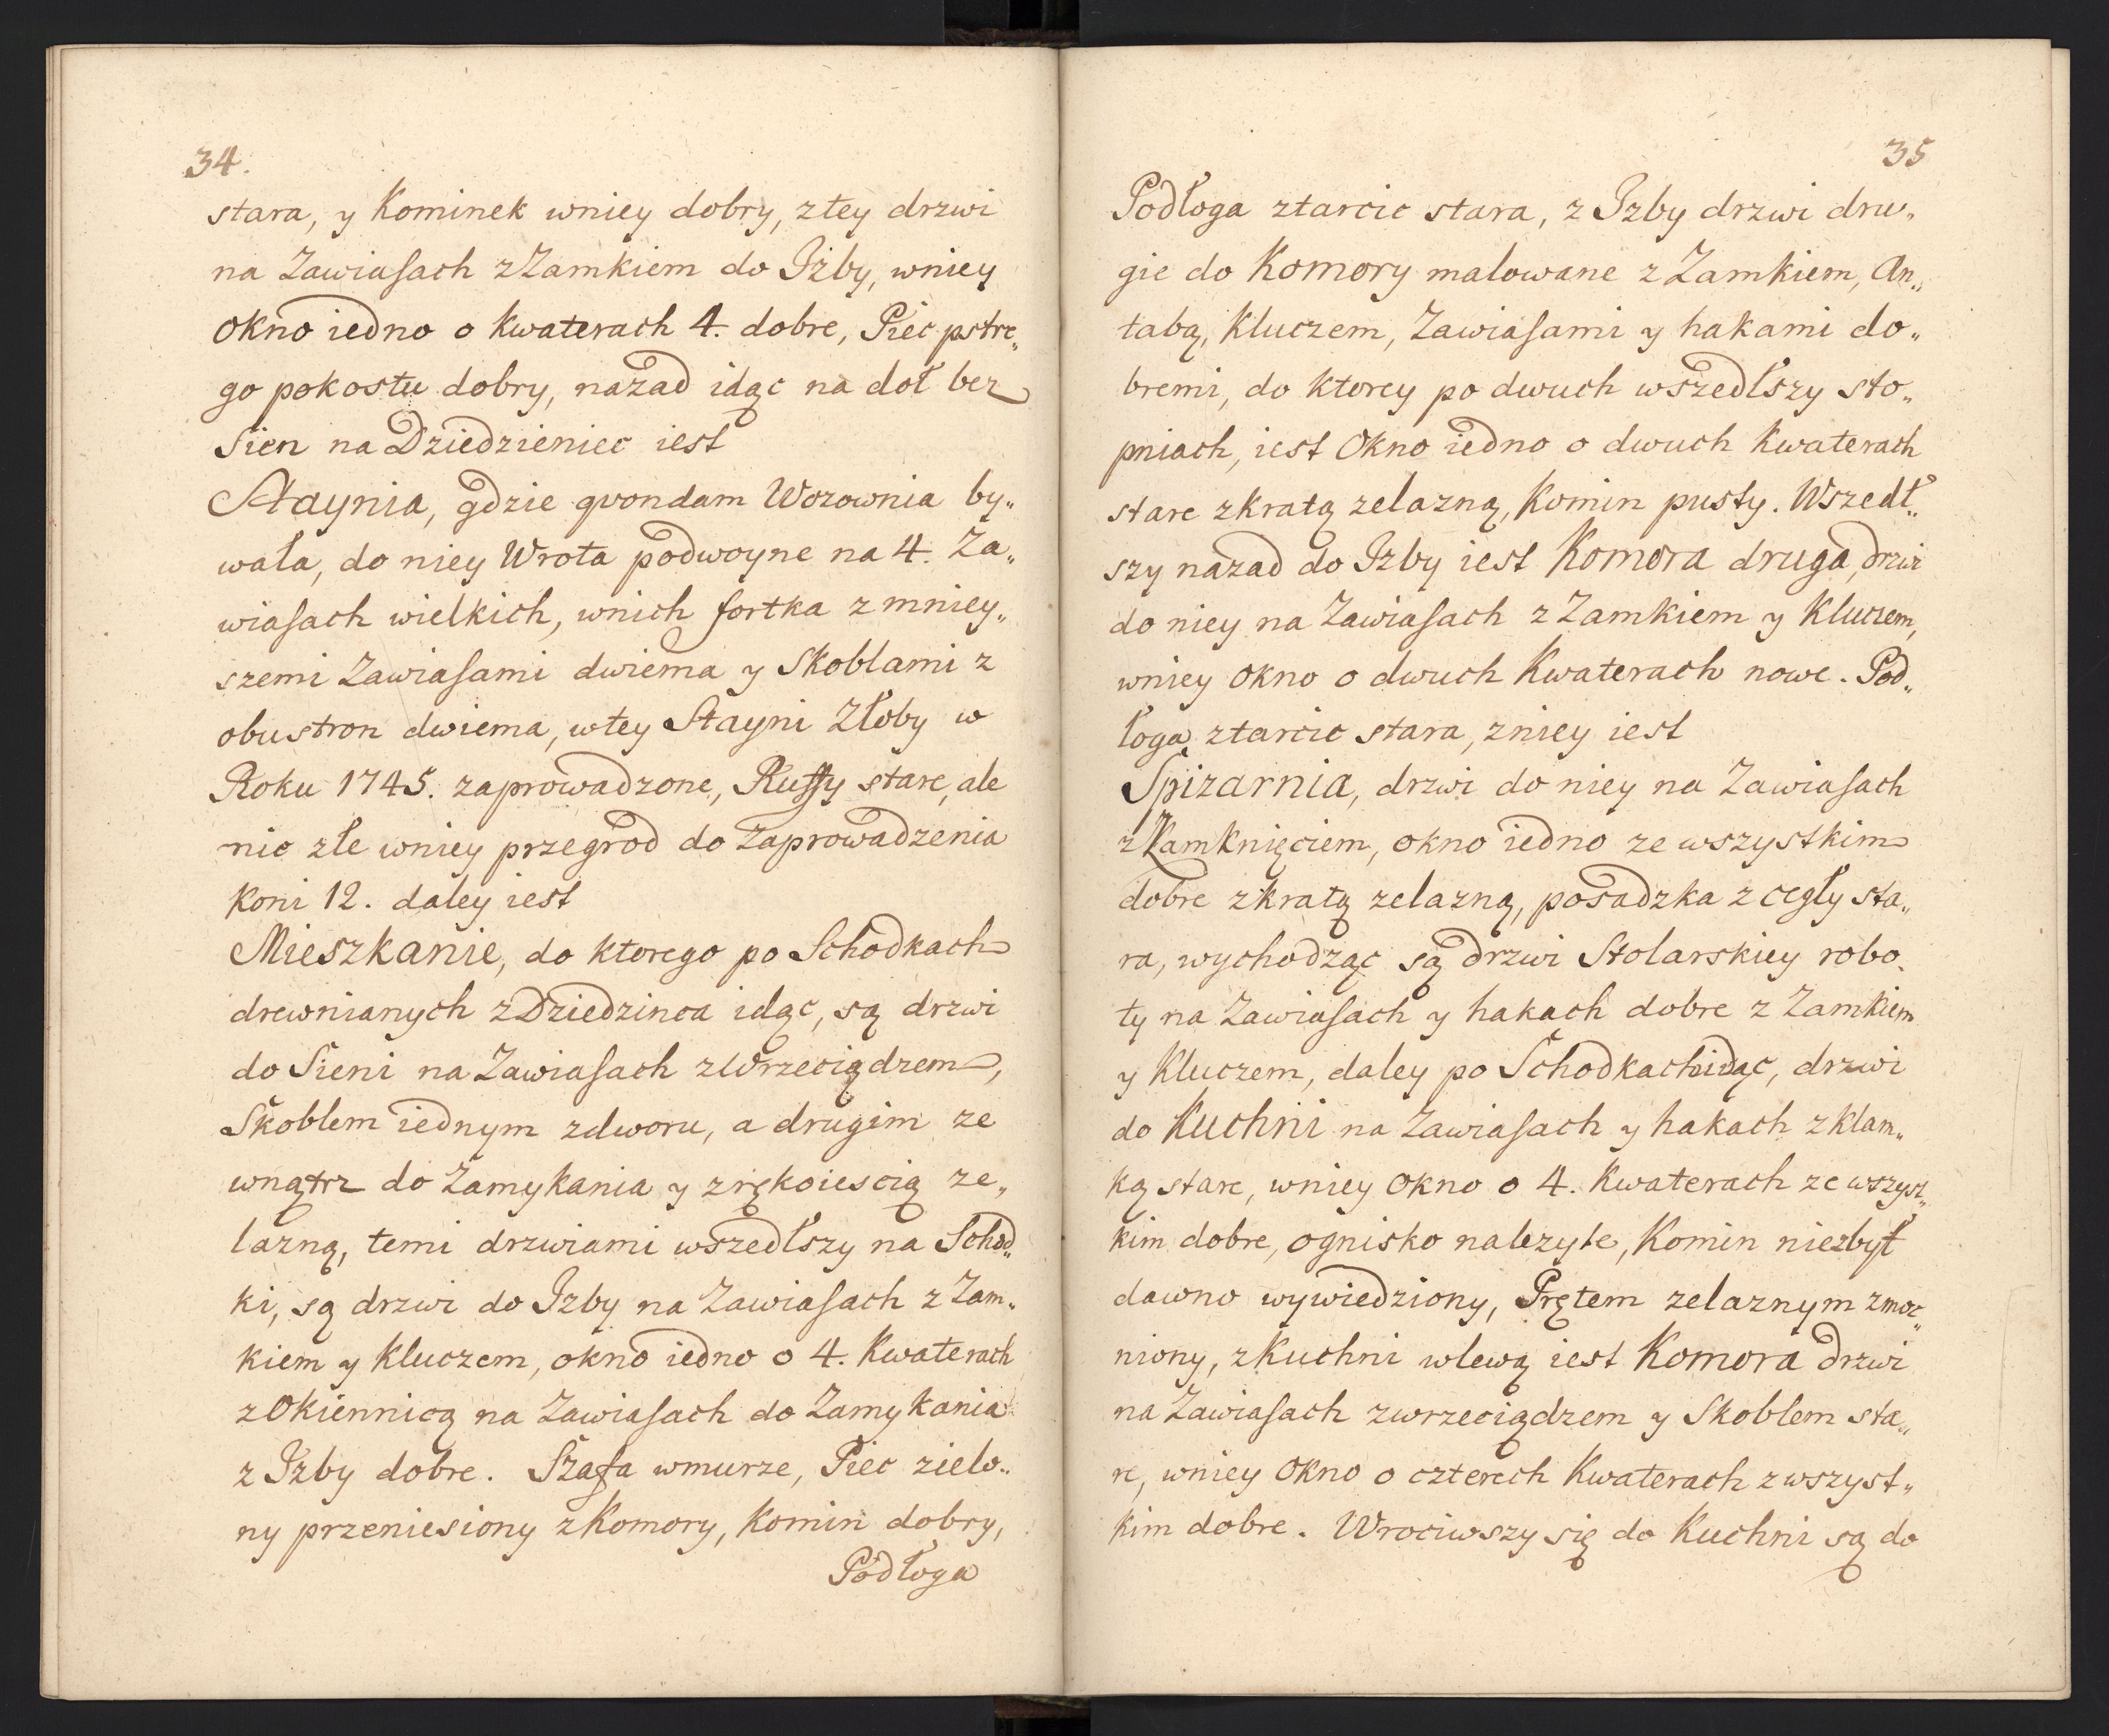 34.
stara, y Kominek wniey dobry, ztey drzwi
na Zawiasach z Zamkiem do Izby, wniey
okno iedno o Kwaterach 4. dobre, Piec pstre„
go pokostu dobry, nazad idąc na doł bez
Sien na Dziedzieniec iest
Staynia, gdzie qvondam Wozownia by„
wała, do niey Wrota podwoyne na 4. Za„
wiasach wielkich, wnich fortka z mniey„
szemi Zawiasami dwiema y Skoblami z
obustron dwiema, wtey Stayni Złoby w
Roku 1745. zaprowadzone, Russy stare, ale
nie złe wniey przegrod do Zaprowadzenia
Koni 12. daley iest
Mieszkanie, do ktorego po Schodkach
drewnianych z Dziedzinca idąc, są drzwi
do Sieni na Zawiasach z Wrzeciądzem,
Skoblem iednym zdworu, a drugim ze
wnątrz do Zamykania y zrękoiescią ze„
lazną, temi drzwiami wszedłszy na Schod„
ki, są drzwi do Izby na Zawiasach z Zam„
kiem y Kluczem, okno iedno o 4. Kwaterach
z Okiennicą na Zawiasach do Zamykania
z Izby dobre. Szafa wmurze, Piec zielo„
ny przeniesiony z Komory, Komin dobry,
Podłoga
35
Podłoga ztarcic stara, z Izby drzwi dru„
gie do Komory malowane z Zamkiem, An„
tabą, Kluczem, Zawiasami y hakami do„
bremi, do Ktorey po dwuch wszedłszy sto„
pniach, iest Okno iedno o dwuch Kwaterach
stare zkratą zelazną, Komin pusty. Wszedł„
szy nazad do Izby iest Komora druga, drzwi
do niey na Zawiasach z Zamkiem y Kluczem,
wniey okno o dwuch Kwaterach nowe. Pod„
łoga ztarcic stara, zniey iest
Spizarnia, drzwi do niey na Zawiasach
z Zamknięciem, okno iedno ze wszystkim
dobre zkratą zelazną, posadzka z cegły sta„
ra, wychodząc są drzwi Stolarskiey robo„
ty na Zawiasach y hakach dobre z Zamkiem
y Kluczem, daley po Schodkach idąc, drzwi
do Kuchni na Zawiasach y hakach z Klam„
ką stare, wniey okno o 4. Kwaterach ze wszyst„
kim dobre, ognisko nalezyte, Komin niezbyt
dawno wywiedziony, Prętem zelaznym zmoc„
niony, z Kuchni wlewą iest Komora drzwi
na Zawiasach zwrzeciądzem y Skoblem sta„
re, wniey okno o czterech Kwaterach z wszyst„
kim dobre. Wrociwszy się do Kuchni są do